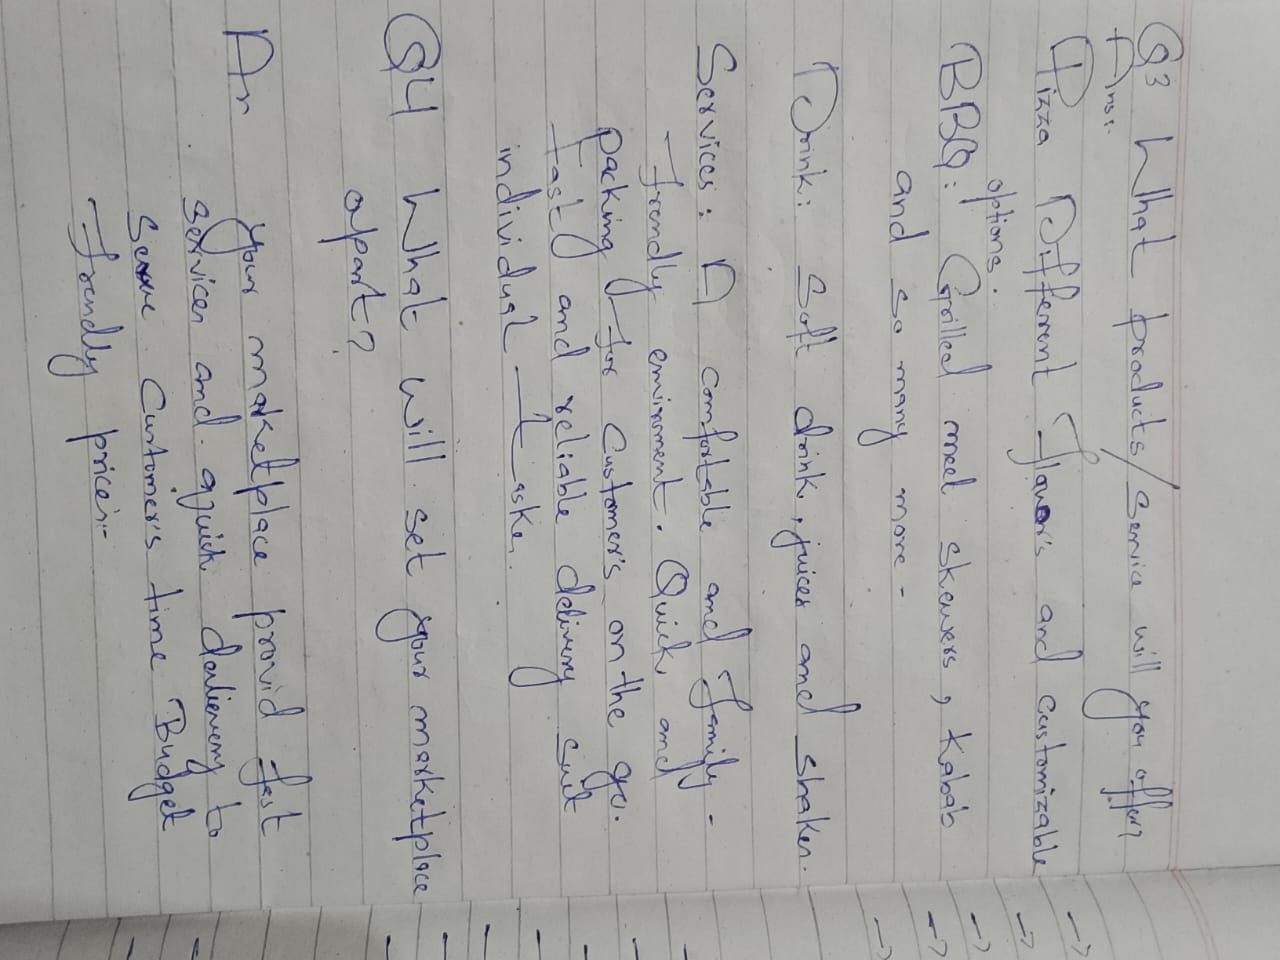 Q3 What products/Service will you offer?
Ans:
Pizza Different Flavor's and customizable
options.
BBQ: Grilled meet skewers, Kabab
and so many more -
Drink: Soft drink, juices and shakes.
Services: A comfortable and family-
frendly environment. Quick and
packing for customer's on the go.
fast and reliable delivery suit
individual taske.
Q4 What will set your marketplace
apart?
An your marketplace provid fast
services and quick
Customer's time Budget
frendly prices.-